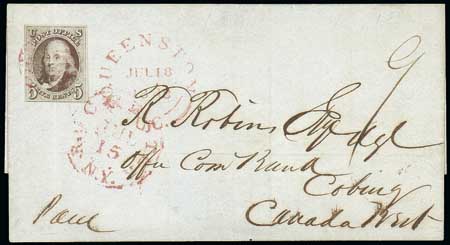 U S
POST OFFICE
5 FIVE CENTS 5
QUEENSTON
JUL 18
15
N.Y.
R. Robins Esq
Com
Cobing
Canada West
Paid